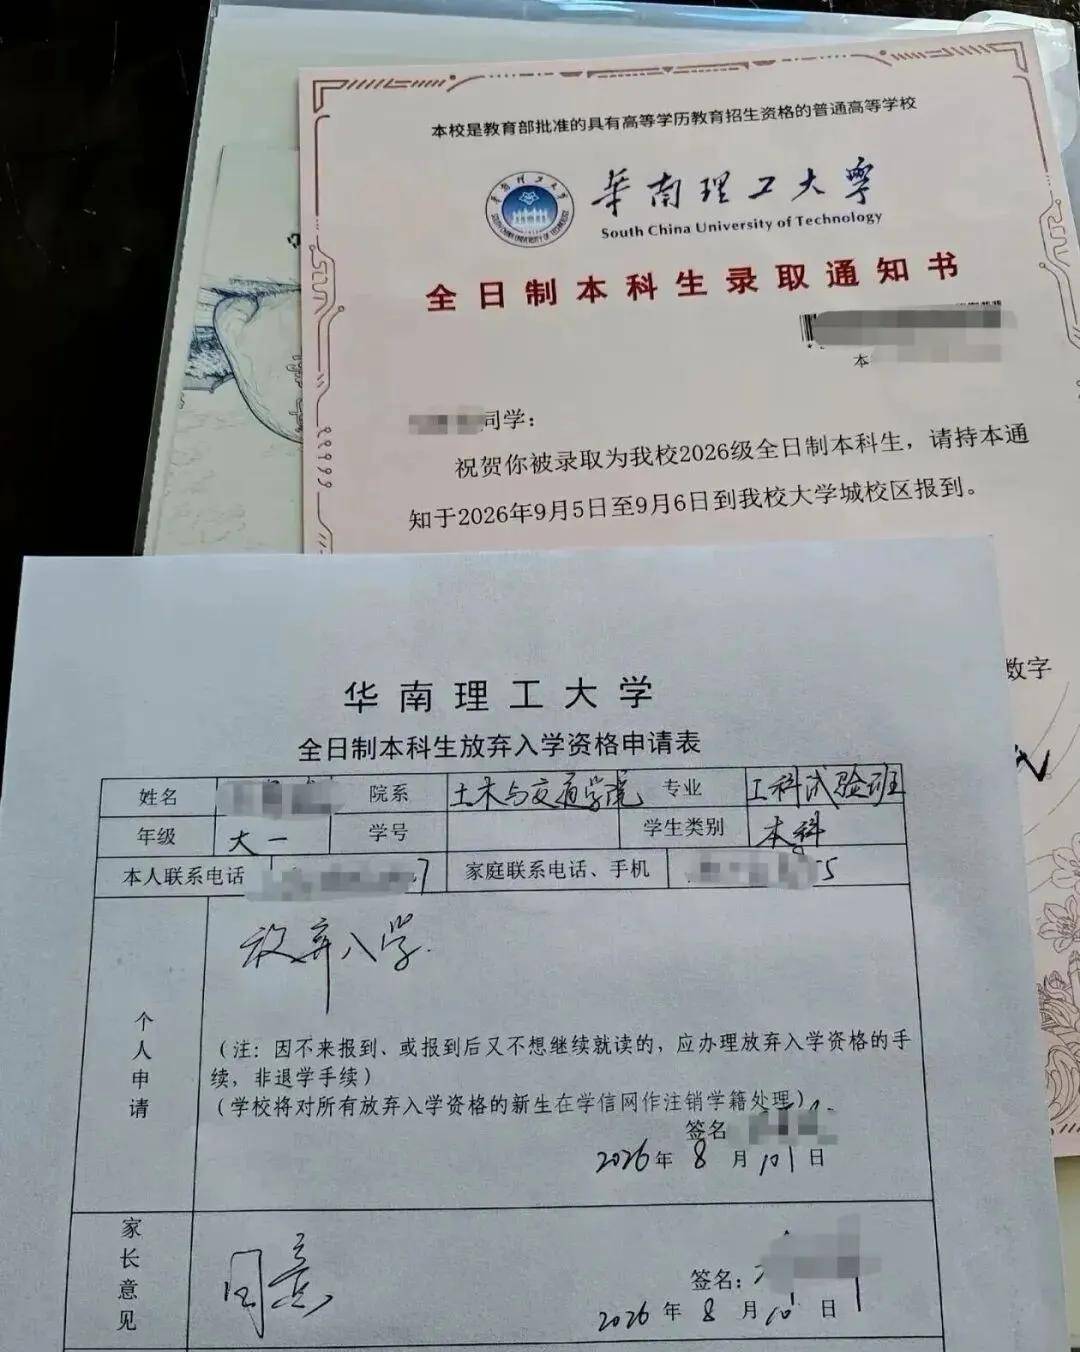 本校是教育部批准的具有高等学历教育招生资格的普通高等学校
華南理工大學
South China University of Technology
全日制本科生录取通知书
本
同学：
祝贺你被录取为我校2026级全日制本科生，请持本通
知于2026年9月5日至9月6日到我校大学城校区报到。
数字
华南理工大学
全日制本科生放弃入学资格申请表
姓名 院系 土木与交通学院 专业 工科试验班
年级 大一 学号 学生类别 本科
本人联系电话 7 家庭联系电话、手机 55
个人申请
放弃入学.
（注：因不来报到、或报到后又不想继续就读的，应办理放弃入学资格的手
续，非退学手续）
（学校将对所有放弃入学资格的新生在学信网作注销学籍处理）
签名
2026年 8 月 10 日
家长意见
同意
签名：
2026年 8 月 10 日